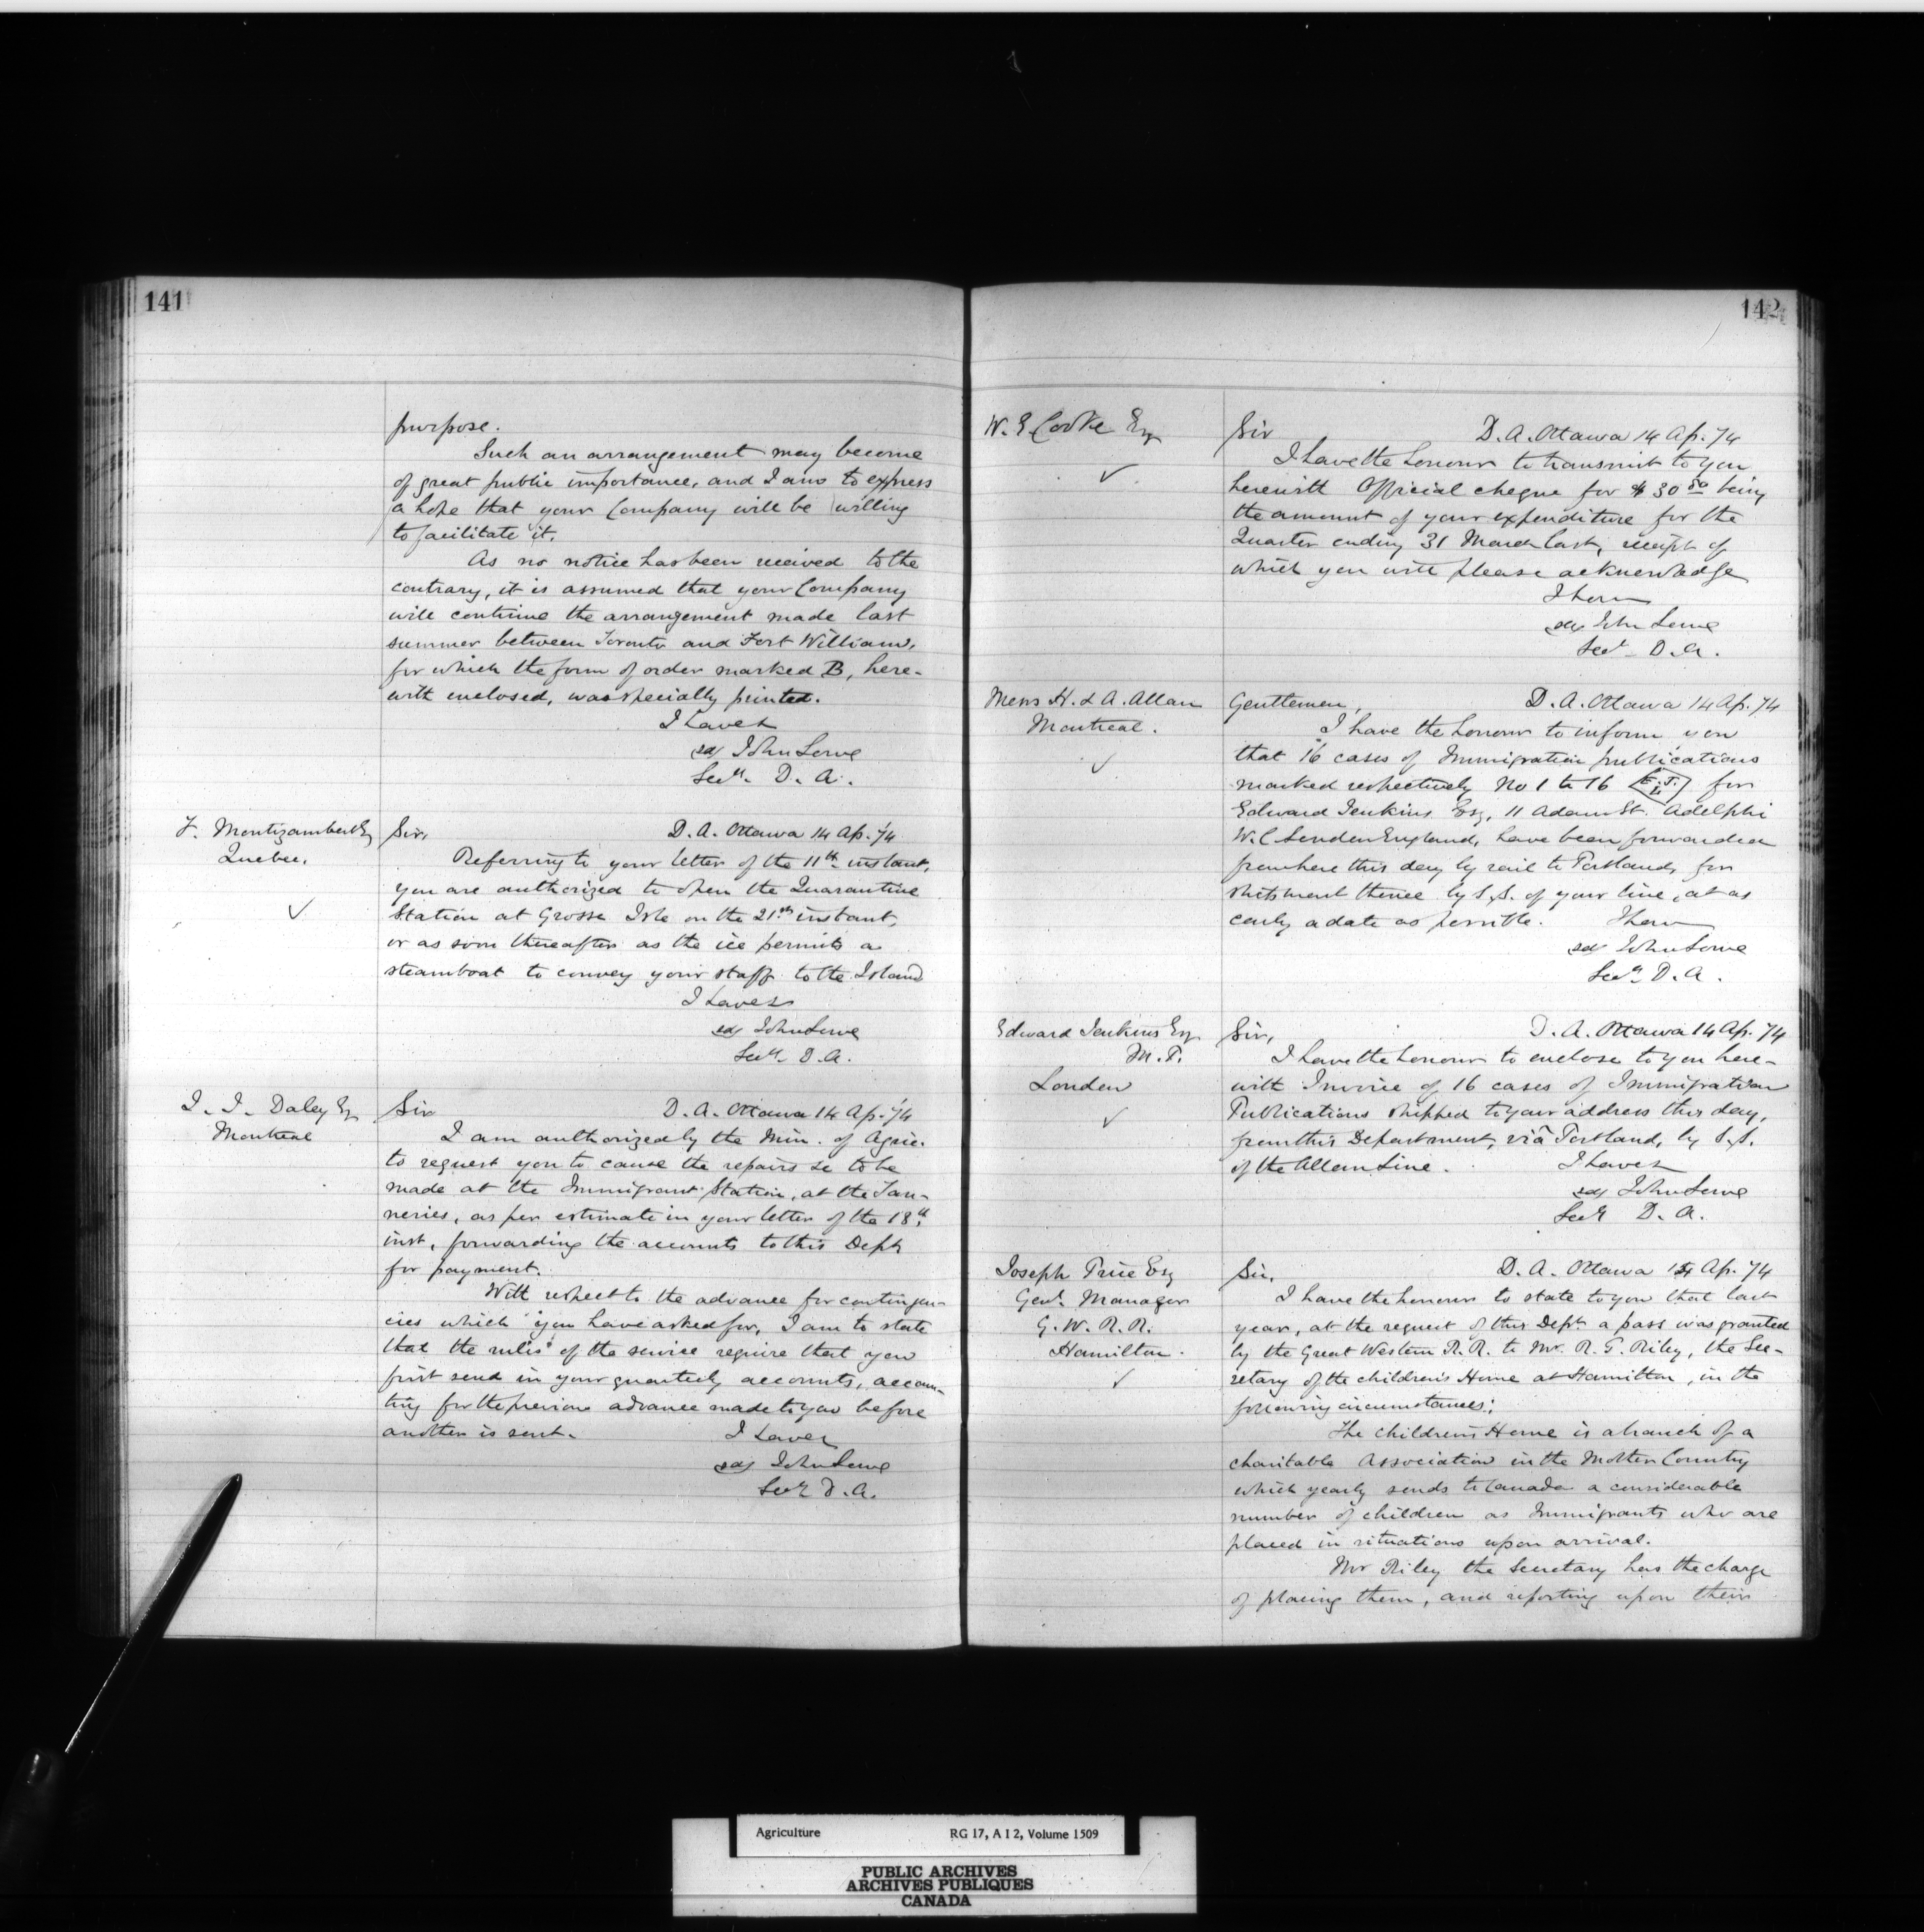 141
purpose.
Such an arrangement may become
of great public importance, and I am to express
a hope that your Company will be willing
to facilitate it.
As no notice has been received to the
contrary, it is assumed that your Company
will continue the arrangement made last
summer between Toronto and Fort William,
for which the form of order marked B, here-
with enclosed, was specially printed.
I have &
sd/ John Lowe
Secy. D. A.
F. Montizambert Esq
Quebec.
Sir,
D. A. Ottawa 14 Ap. '74
Referring to your letter of the 11th instant,
you are authorized to open the Quarantine
Station at Grosse Isle on the 21st instant,
or as soon thereafter as the ice permits a
steamboat to convey your staff to the Island
I have &
sd/ John Lowe
Secy. D. A.
J. J. Daley Esq
Montreal
Sir
D. A. Ottawa 14 Ap. '74
I am authorized by the Min. of Agric.
to request you to cause the repairs &c to be
made at the Immigrant Station, at the Tan-
neries, as per estimate in your letter of the 13th
inst, forwarding the accounts to this Dept
for payment.
With respect to the advance for contingen-
cies which you have asked for, I am to state
that the rules of the service require that you
first send in your quarterly accounts, accoun-
ting for the previous advance made to you before
another is sent.
I have &
sd/ John Lowe
Secy D. A.
142
W. E. Cooke Esq
Sir
D. A. Ottawa 14 Ap. 74
I have the honour to transmit to you
herewith Official cheque for $30 50 being
the amount of your expenditure for the
Quarter ending 31 March last, receipt of
which you will please acknowledge
I have
sd/ John Lowe
Secy D. A.
Mess H. & A. Allan
Montreal.
Gentlemen,
D. A. Ottawa 14 Ap. 74
I have the honour to inform you
that 16 cases of Immigration publications
marked respectively No 1 to 16 E.J. L for
Edward Jenkins Esq, 11 Adam St. Adelphi
W.C. London England, have been forwarded
from here this day by rail to Portland, for
shipment thence by S.S. of your line, at as
early a date as possible.
I have
sd/ John Lowe
Secy D. A.
Edward Jenkins Esq
M. P.
London
Sir,
D. A. Ottawa 14 Ap. 74
I have the honour to enclose to you here-
with Invoice of 16 cases of Immigration
Publications shipped to your address this day,
from this Department, viâ Portland, by S.S.
of the Allan Line.
I have &
sd/ John Lowe
Secy D. A.
Joseph Price Esq
Genl. Manager
G. W. R. R.
Hamilton.
Sir,
D. A. Ottawa Ap. 74
I have the honour to state to you that last
year, at the request of this Dept. a pass was granted
by the Great Western R. R. to Mr. R. G. Riley, the Sec-
retary of the children's Home at Hamilton, in the
following circumstances:
The children's Home is a branch of a
charitable Association in the Mother Country
which yearly sends to Canada a considerable
number of children as Immigrants who are
placed in situations upon arrival.
Mr Riley the Secretary has the charge
of placing them, and reporting upon their
Agriculture
RG 17, A I 2, Volume 1509
PUBLIC ARCHIVES
ARCHIVES PUBLIQUES
CANADA